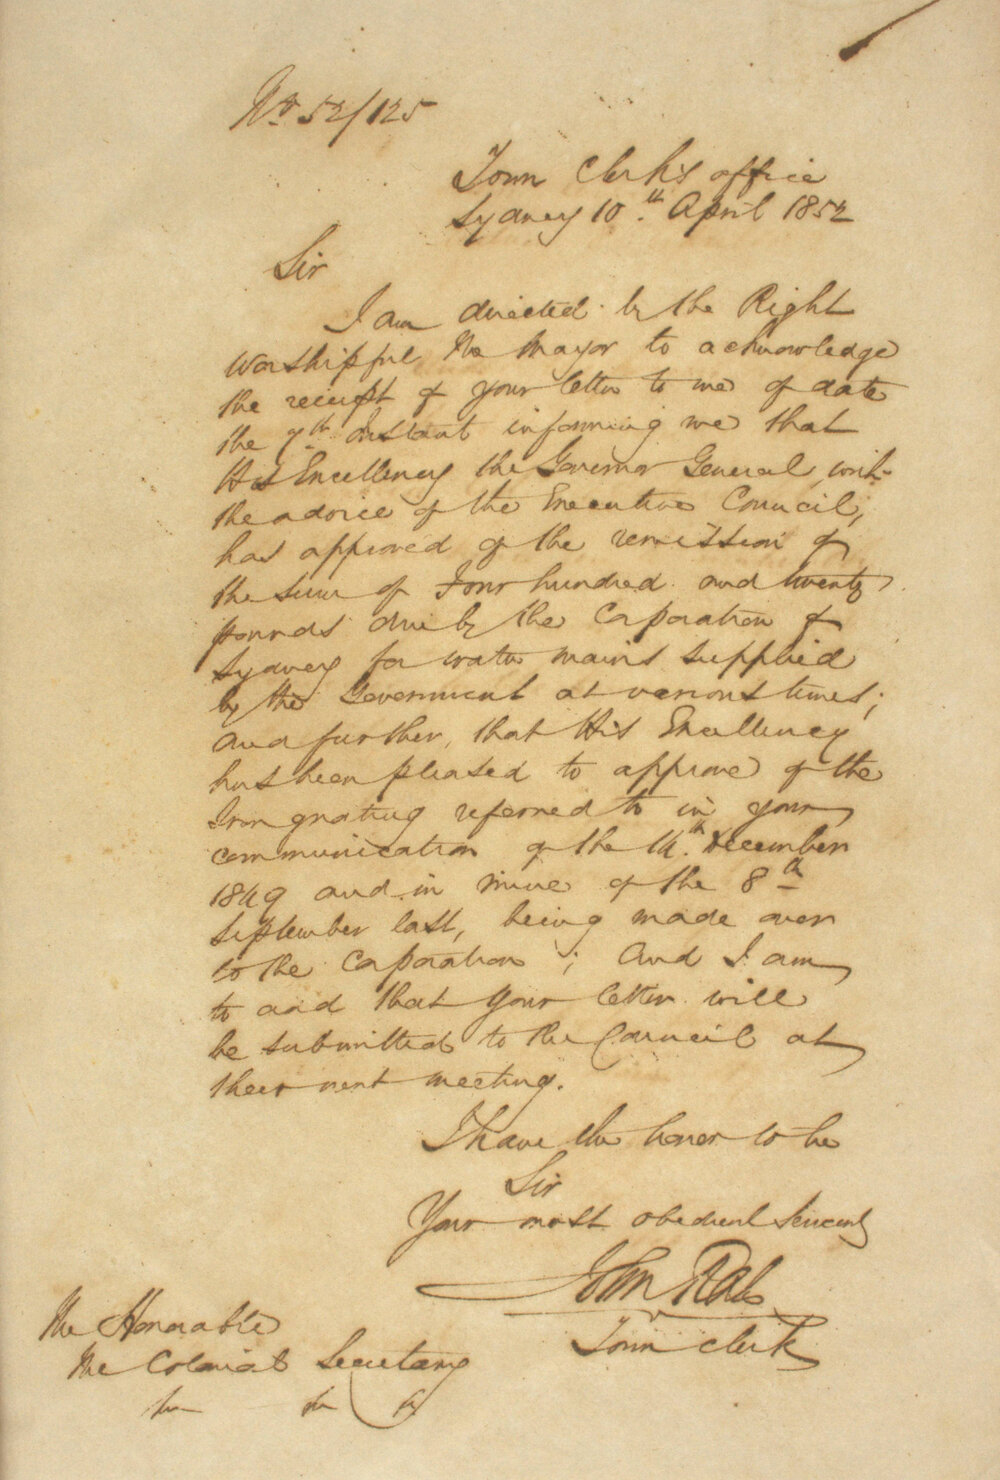 No. 52/125
Town Clerk's office
Sydney 10th. April 1852
Sir
I am directed by the Right
Worshipful the Mayor to acknowledge
the receipt of your letter to me of date
the 7th. Instant informing me that
His Excellency the Governor General, with
the advice of the Executive Council,
has approved of the remission of
the sum of Four hundred and twenty
pounds due by the Corporation of
Sydney for water mains supplied
by the Government at various times;
and further, that His Excellency
has been pleased to approve of the
Iron grating referred to in your
communication of the 14th. December
1849 and in mine of the 8th
September last, being made over
to the Corporation; and I am
to add that your letter will
be submitted to the Council at
their next meeting.
I have the honor to be
Sir
Your most obedient Servant
John Rae
Town Clerk
The Honorable
The Colonial Secretary